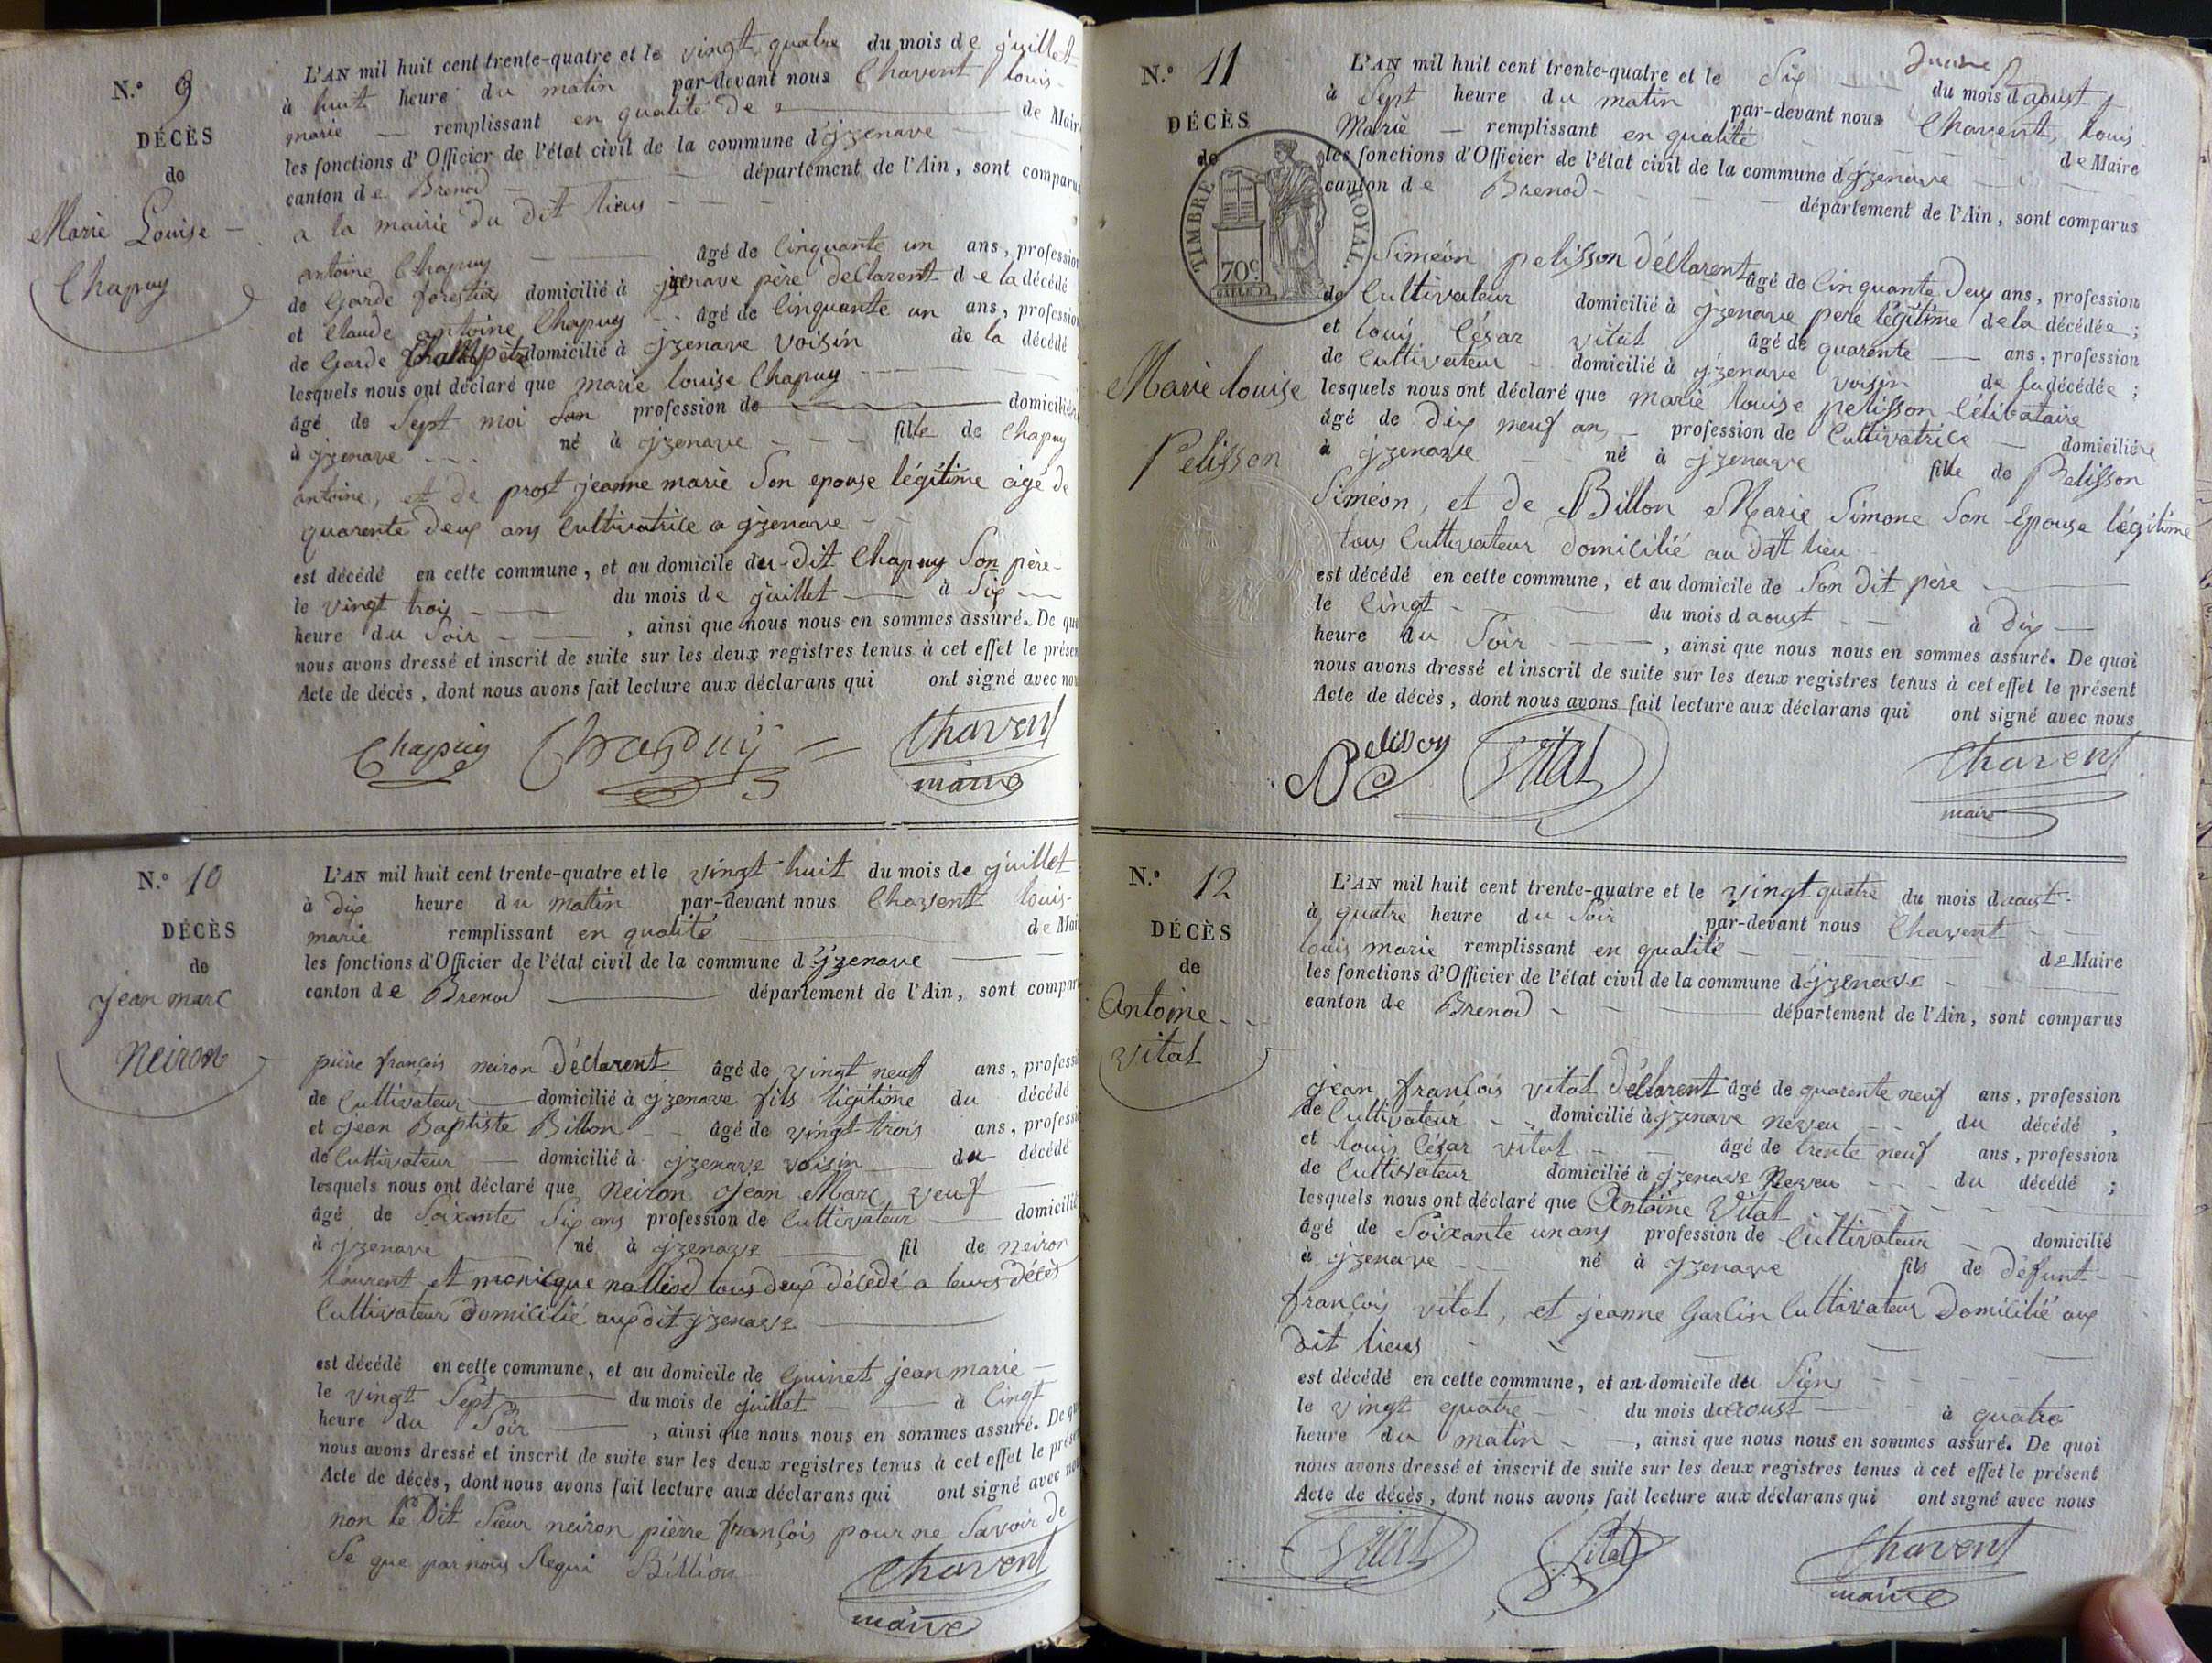 N.° 9
DÉCÈS
de
Marie Louise
Chapuy
L'AN mil huit cent trente-quatre et le vingt quatre du mois de juillet
à huit heure du matin par-devant nous Chavent louis
marie remplissant en qualité de de Maire
les fonctions d'Officier de l'état civil de la commune d'jzenave
canton de Brenod département de l'Ain, sont comparus
a la mairie du dit lieus
antoine Chapuy âgé de Cinquante un ans, profession
de Garde forestier domicilié à jzenave père déClarent de la décédé
et Claude antoine Chapuy âgé de Cinquante un ans, profession
de Garde Champêtre domicilié à jzenave voisin de la décédé
lesquels nous ont déclaré que marie louise Chapuy
âgé de Sept moi profession de domicilié
à jzenave né à jzenave fille de Chapuy
antoine, et de prost jeanne marie Son epouse légitime âgé de
quarente deux ans Cultivatrice a jzenave
est décédé en cette commune, et au domicile du dit Chapuy Son père
le vingt trois du mois de juillet à Six
heure du Soir, ainsi que nous nous en sommes assuré. De quoi
nous avons dressé et inscrit de suite sur les deux registres tenus à cet effet le présent
Acte de décès, dont nous avons fait lecture aux déclarans qui ont signé avec nous
Chapuy Chapuy Chavent
maire
N.° 10
DÉCÈS
de
jean marc
Neiron
L'AN mil huit cent trente-quatre et le vingt huit du mois de juillet
à dix heure du matin par-devant nous Chavent louis
marie remplissant en qualité de Mai
les fonctions d'Officier de l'état civil de la commune d'jzenave
canton de Brenod département de l'Ain, sont compar
pierre françois neiron déClarent âgé de vingt neuf ans, profess
de Cultivateur domicilié à jzenave fils ligitime du décédé
et jean Baptiste Billon âgé de vingt trois ans, profess
de Cultivateur domicilié à jzenave voisin du décédé
lesquels nous ont déclaré que Neiron jean Marc, veuf
âgé de Soixante Six ans profession de Cultivateur domicilié
à jzenave né à jzenave fil de neiron
laurent et monicque nalliod tous deux décédé a leurs décès
Cultivateur domicilié aux dit jzenave
est décédé en cette commune, et au domicile de Guinet jean marie
le vingt Sept du mois de juillet à Cingt
heure du Soir, ainsi que nous nous en sommes assuré. De qu
nous avons dressé et inscrit de suite sur les deux registres tenus à cet effet le prése
Acte de décès, dont nous avons fait lecture aux déclarans qui ont signé avec nou
non le dit Sieur neiron pièrre françois pour ne Savoir de
Se que par nous Requi Billion
Chavent
maire
N.° 11
DÉCÈS
de
TIMBRE ROYAL.
70c
Marie louise
Pelisson
L'AN mil huit cent trente-quatre et le Six du mois d'aoust
à Sept heure du matin par-devant nous Chavent, louis
Marie remplissant en qualité de Maire
les fonctions d'Officier de l'état civil de la commune d'jzenave
canton de Brenod département de l'Ain, sont comparus
Siméon pelisson déClarent âgé de Cinquante deux ans, profession
de Cultivateur domicilié à jzenave pere légitime de la décédée;
et louis César vital âgé de quarente ans, profession
de Cultivateur domicilié à jzenave voisin de la décédée;
lesquels nous ont déclaré que marie louise pelisson Célibataire
âgé de dix neuf an profession de Cultivatrice domiciliére
à jzenave né à jzenave fille de Pelisson
Siméon, et de Billon Marie Simone Son Epouse légitime
tous Cultivateur domicilié au dit lieu
est décédé en cette commune, et au domicile de Son dit père
le Cingt du mois d aoust à dix
heure du Soir, ainsi que nous nous en sommes assuré. De quoi
nous avons dressé et inscrit de suite sur les deux registres tenus à cet effet le présent
Acte de décès, dont nous avons fait lecture aux déclarans qui ont signé avec nous
Pelisson Vital Chavent
maire
N.° 12
DÉCÈS
de
Antoine
vital
L'AN mil huit cent trente-quatre et le vingt quatre du mois d aoust
à quatre heure du Soir par-devant nous Chavent
louis marie remplissant en qualité de Maire
les fonctions d'Officier de l'état civil de la commune d'jzenave
canton de Brenod département de l'Ain, sont comparus
jean françois vital déClarent âgé de quarente neuf ans, profession
de Cultivateur domicilié à jzenave neveu du décédé,
et louis César vital âgé de trente neuf ans, profession
de Cultivateur domicilié à jzenave Neveu du décédé;
lesquels nous ont déclaré que Antoine Vital
âgé de Soixante un ans profession de Cultivateur domicilié
à jzenave né à jzenave fils de défunt
françois vital, et jeanne Garlin Cultivateur Domicilié aux
dit lieus
est décédé en cette commune, et au domicile du Siens
le vingt quatre du mois d'aoust à quatre
heure du matin, ainsi que nous nous en sommes assuré. De quoi
nous avons dressé et inscrit de suite sur les deux registres tenus à cet effet le présent
Acte de décès, dont nous avons fait lecture aux déclarans qui ont signé avec nous
Vital Vital Chavent
maire